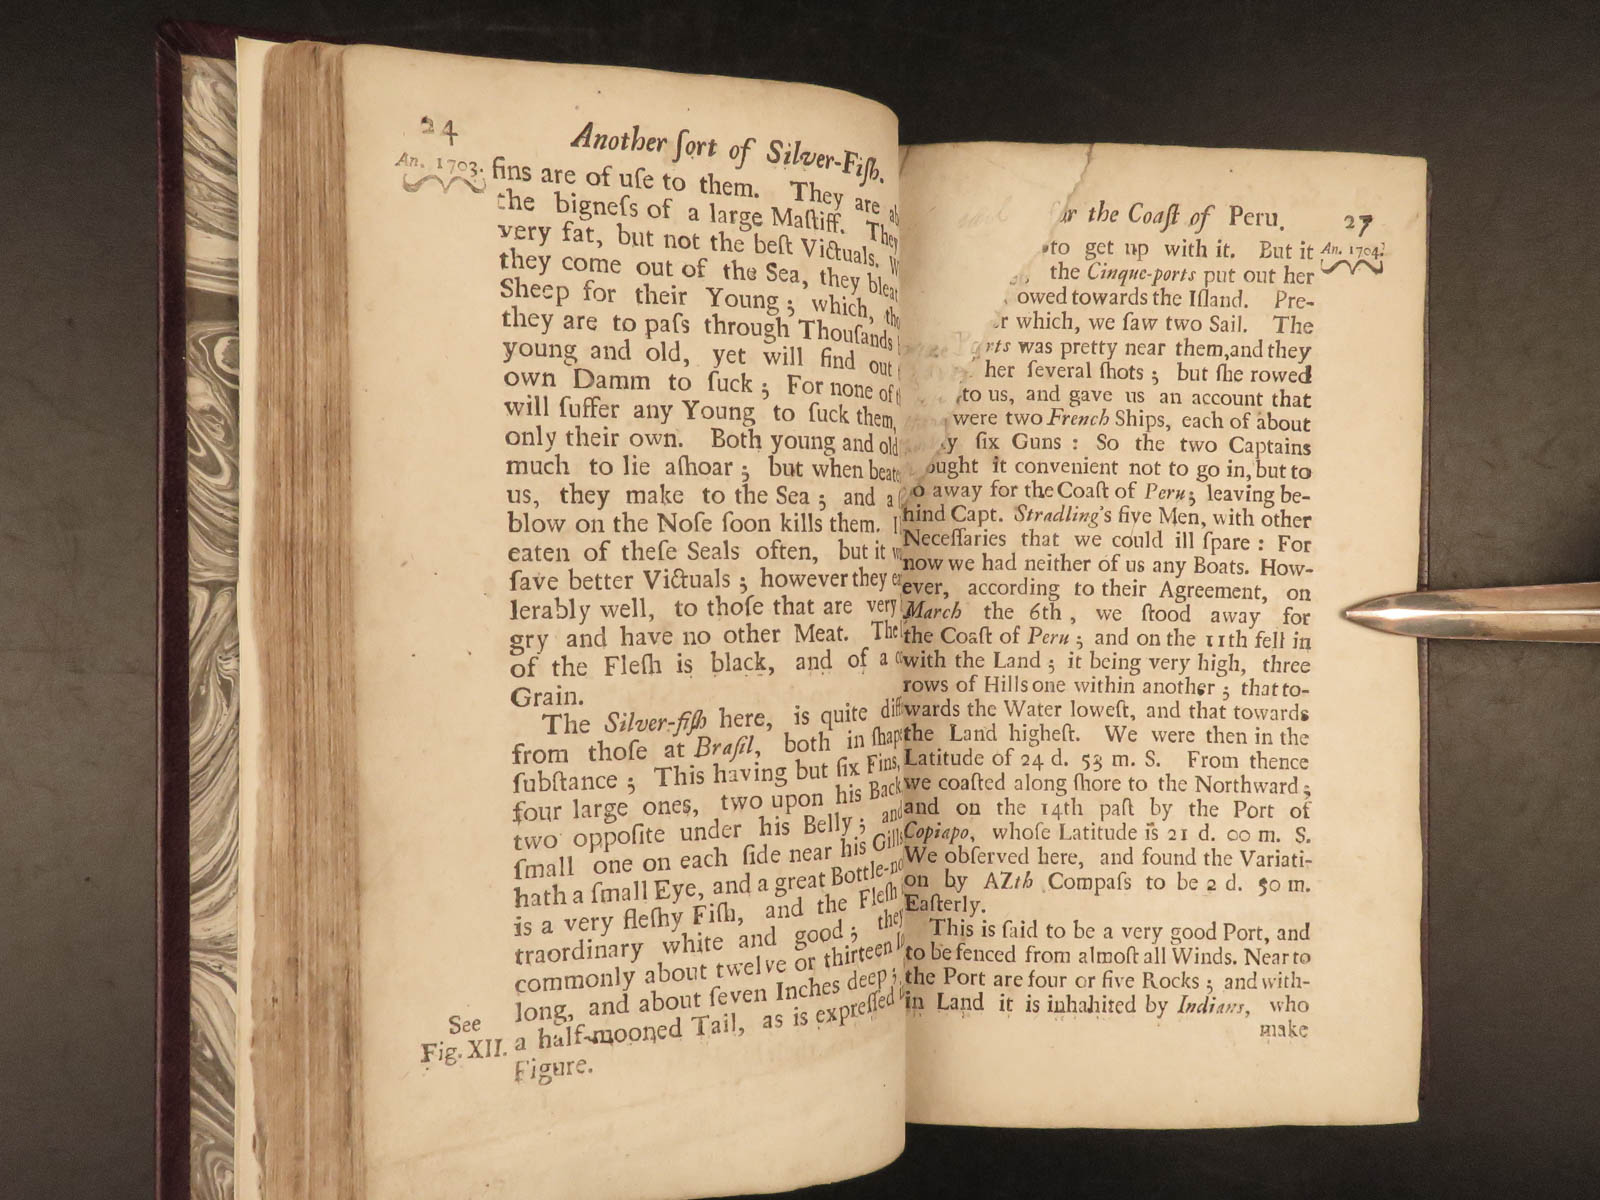 24
Another ſort of Silver-Fiſh.
An. 1703.
fins are of uſe to them. They are
the bigneſs of a large Maſtiff. They
very fat, but not the beſt Victuals.
they come out of the Sea, they bleat
Sheep for their Young; which,
they are to paſs through Thouſands
young and old, yet will find out
own Damm to ſuck; For none of
will ſuffer any Young to ſuck them,
only their own. Both young and old
much to lie aſhoar; but when
us, they make to the Sea; and a
blow on the Noſe ſoon kills them.
eaten of theſe Seals often, but it
ſave better Victuals; however they
lerably well, to thoſe that are very
gry and have no other Meat. The
of the Fleſh is black, and of a
Grain.
The Silver-fiſh here, is quite
from thoſe at Braſil, both in
ſubſtance; This having but ſix Fins,
four large ones, two upon his Back
two oppoſite under his Belly; and
ſmall one on each ſide near his Gills
hath a ſmall Eye, and a great
is a very fleſhy Fiſh, and the Fleſh
traordinary white and good; they
commonly about twelve or thirteen
long, and about ſeven Inches deep;
a half-mooned Tail, as is expreſſed
Figure.
See
Fig. XII.
the Coaſt of Peru.
27
An. 1704.
to get up with it. But it
the Cinque-ports put out her
owed towards the Iſland. Pre-
r which, we ſaw two Sail. The
rts was pretty near them, and they
her ſeveral ſhots; but ſhe rowed
to us, and gave us an account that
were two French Ships, each of about
y ſix Guns: So the two Captains
ought it convenient not to go in, but to
o away for the Coaſt of Peru; leaving be-
hind Capt. Stradling's five Men, with other
Neceſſaries that we could ill ſpare: For
now we had neither of us any Boats. How-
ever, according to their Agreement, on
March the 6th, we ſtood away for
the Coaſt of Peru; and on the 11th fell in
with the Land; it being very high, three
rows of Hills one within another; that to-
wards the Water loweſt, and that towards
the Land higheſt. We were then in the
Latitude of 24 d. 53 m. S. From thence
we coaſted along ſhore to the Northward;
and on the 14th paſt by the Port of
Copiapo, whoſe Latitude is 21 d. 00 m. S.
We obſerved here, and found the Variati-
on by AZth Compaſs to be 2 d. 50 m.
Eaſterly.
This is ſaid to be a very good Port, and
to be fenced from almoſt all Winds. Near to
the Port are four or five Rocks; and with-
in Land it is inhabited by Indians, who
make